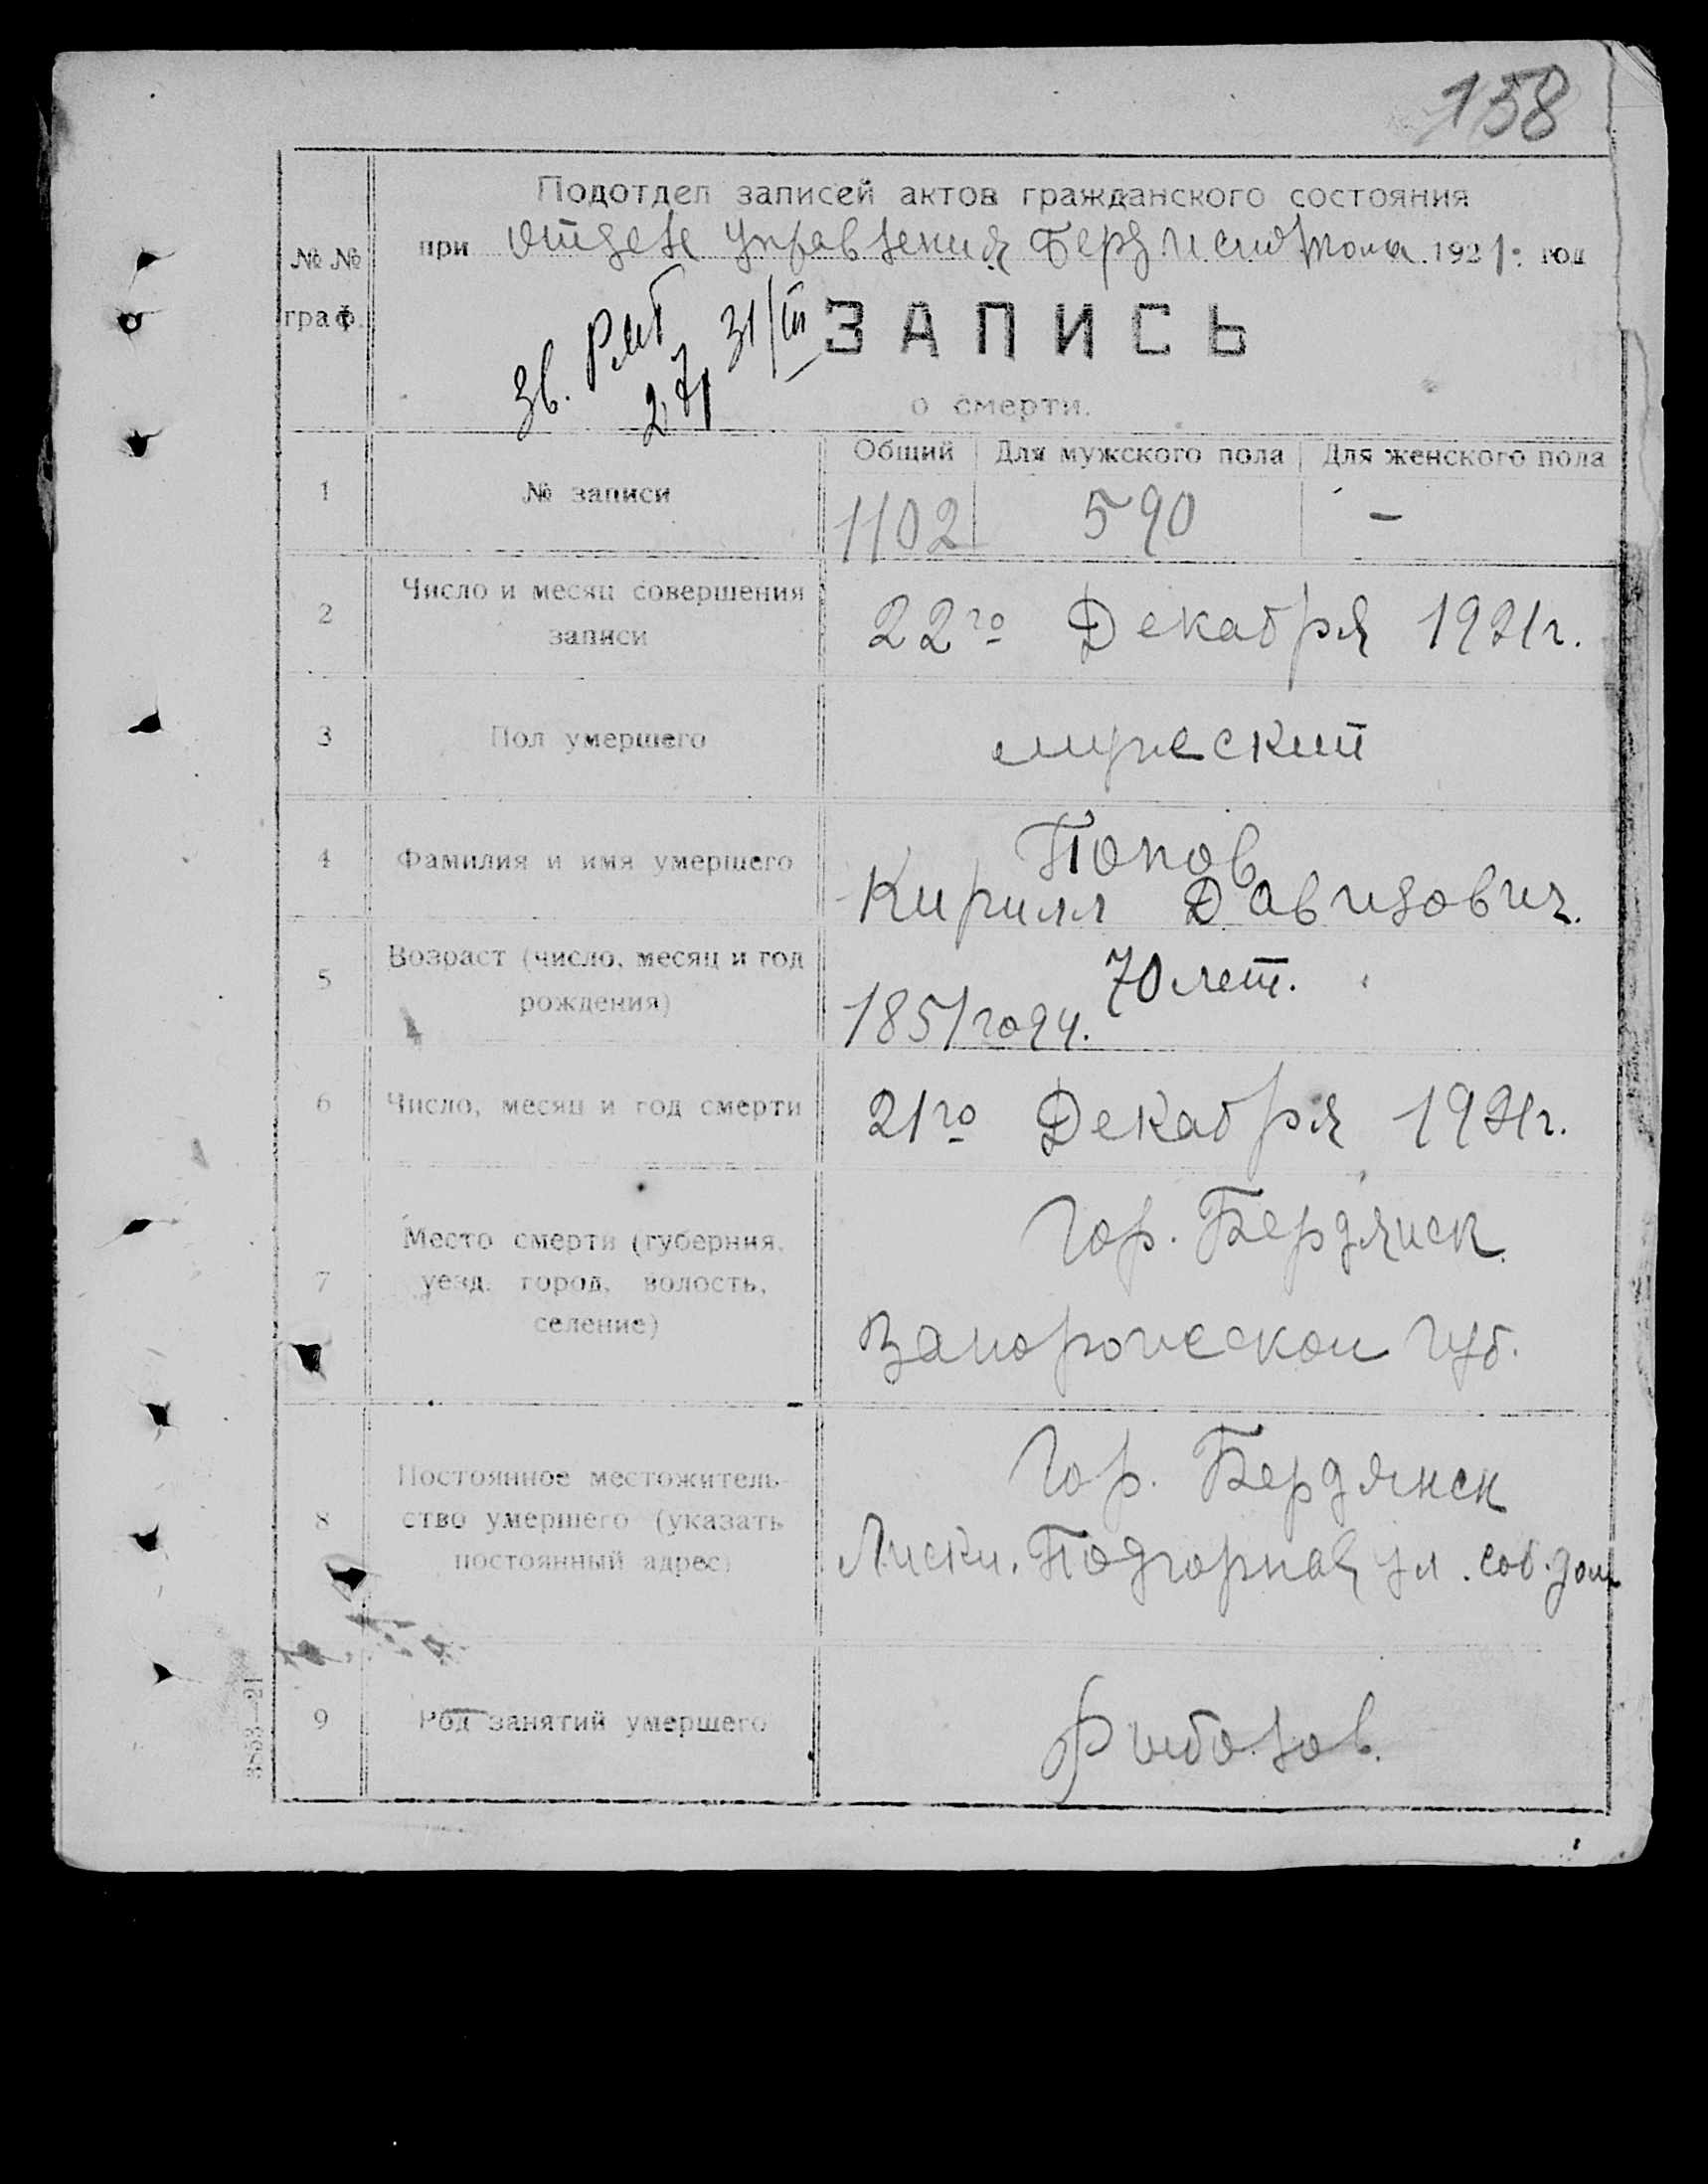 158
Подотдел записей актов гражданского состояния
при отделе Управления Бердисполкома 1921 год
№ №
граф.
31/III
ЗАПИСЬ
о смерти.
Общий Для мужского пола Для женского пола
1 № записи 1102 590 -
2 Число и месяц совершения
записи
22го Декабря 1921г.
3 Пол умершего мужеский
4 Фамилия и имя умершего
Попов
Кирилл Давидович.
5 Возраст (число, месяц и год
рождения)
70 лет.
1851 году.
6 Число, месяц и год смерти 21го Декабря 1921г.
7 Место смерти (губерния,
уезд, город, волость,
селение)
Гор. Бердянск
Запорожеской Губ.
8 Постоянное местожитель-
ство умершего (указать
постоянный адрес)
Гор. Бердянск
Лиски. Подгорная ул. соб. дом
9 Род занятий умершего Рыболов.
3853—21